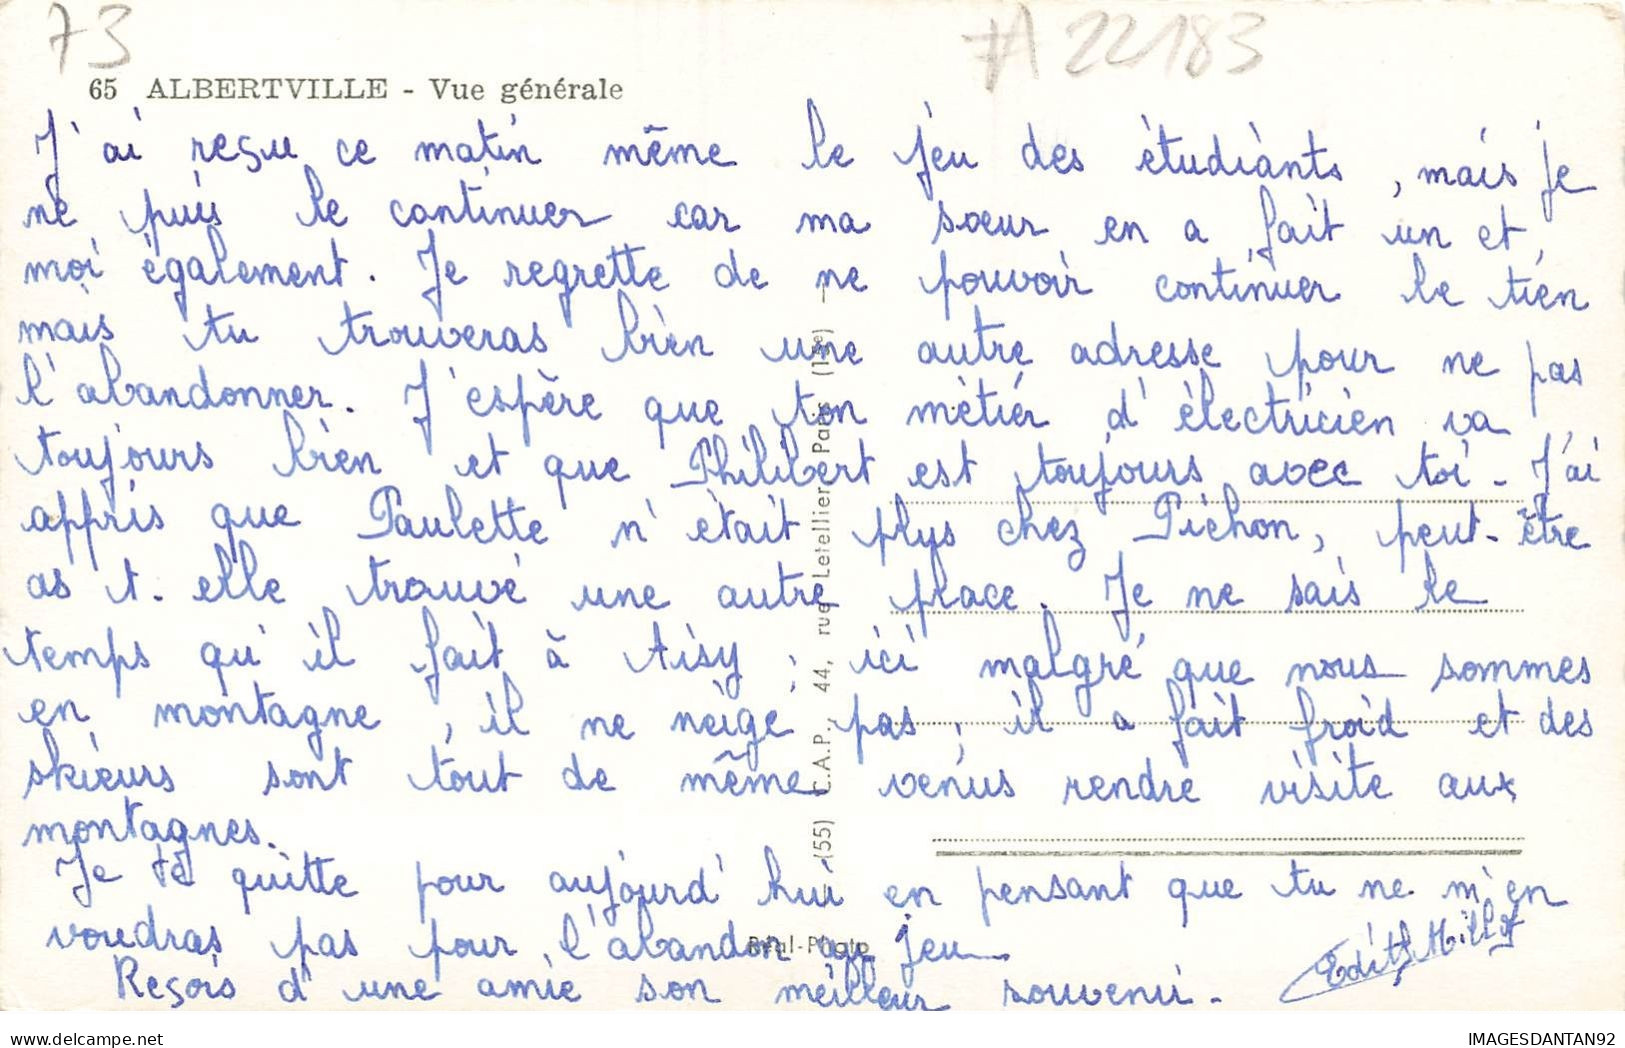 73
A 22183
65 ALBERTVILLE - Vue générale
J'ai reçu ce matin même le jeu des étudiants, mais je
ne puis le continuer car ma sœur en a fait un et
moi également. Je regrette de ne pouvoir continuer le tien
mais tu trouveras bien une autre adresse pour ne pas
l'abandonner. J'espère que ton métier d'électricien va
toujours bien et que Philibert est toujours avec toi - J'ai
appris que Paulette n'était plus chez Pichon, peut-être
as t-elle trouvé une autre place. Je ne sais le
temps qu'il fait à Aisy ; ici malgré que nous sommes
en montagne, il ne neige pas ; il a fait froid et des
skieurs sont tout de même venus rendre visite aux
montagnes.
Je te quitte pour aujourd'hui en pensant que tu ne m'en
voudras pas pour l'abandon au jeu.
Reçois d'une amie son meilleur souvenir.
Edith
(55) C.A.P. 44, rue Letellier Paris (15e)
Réal-Photo
IMAGESDANTAN92